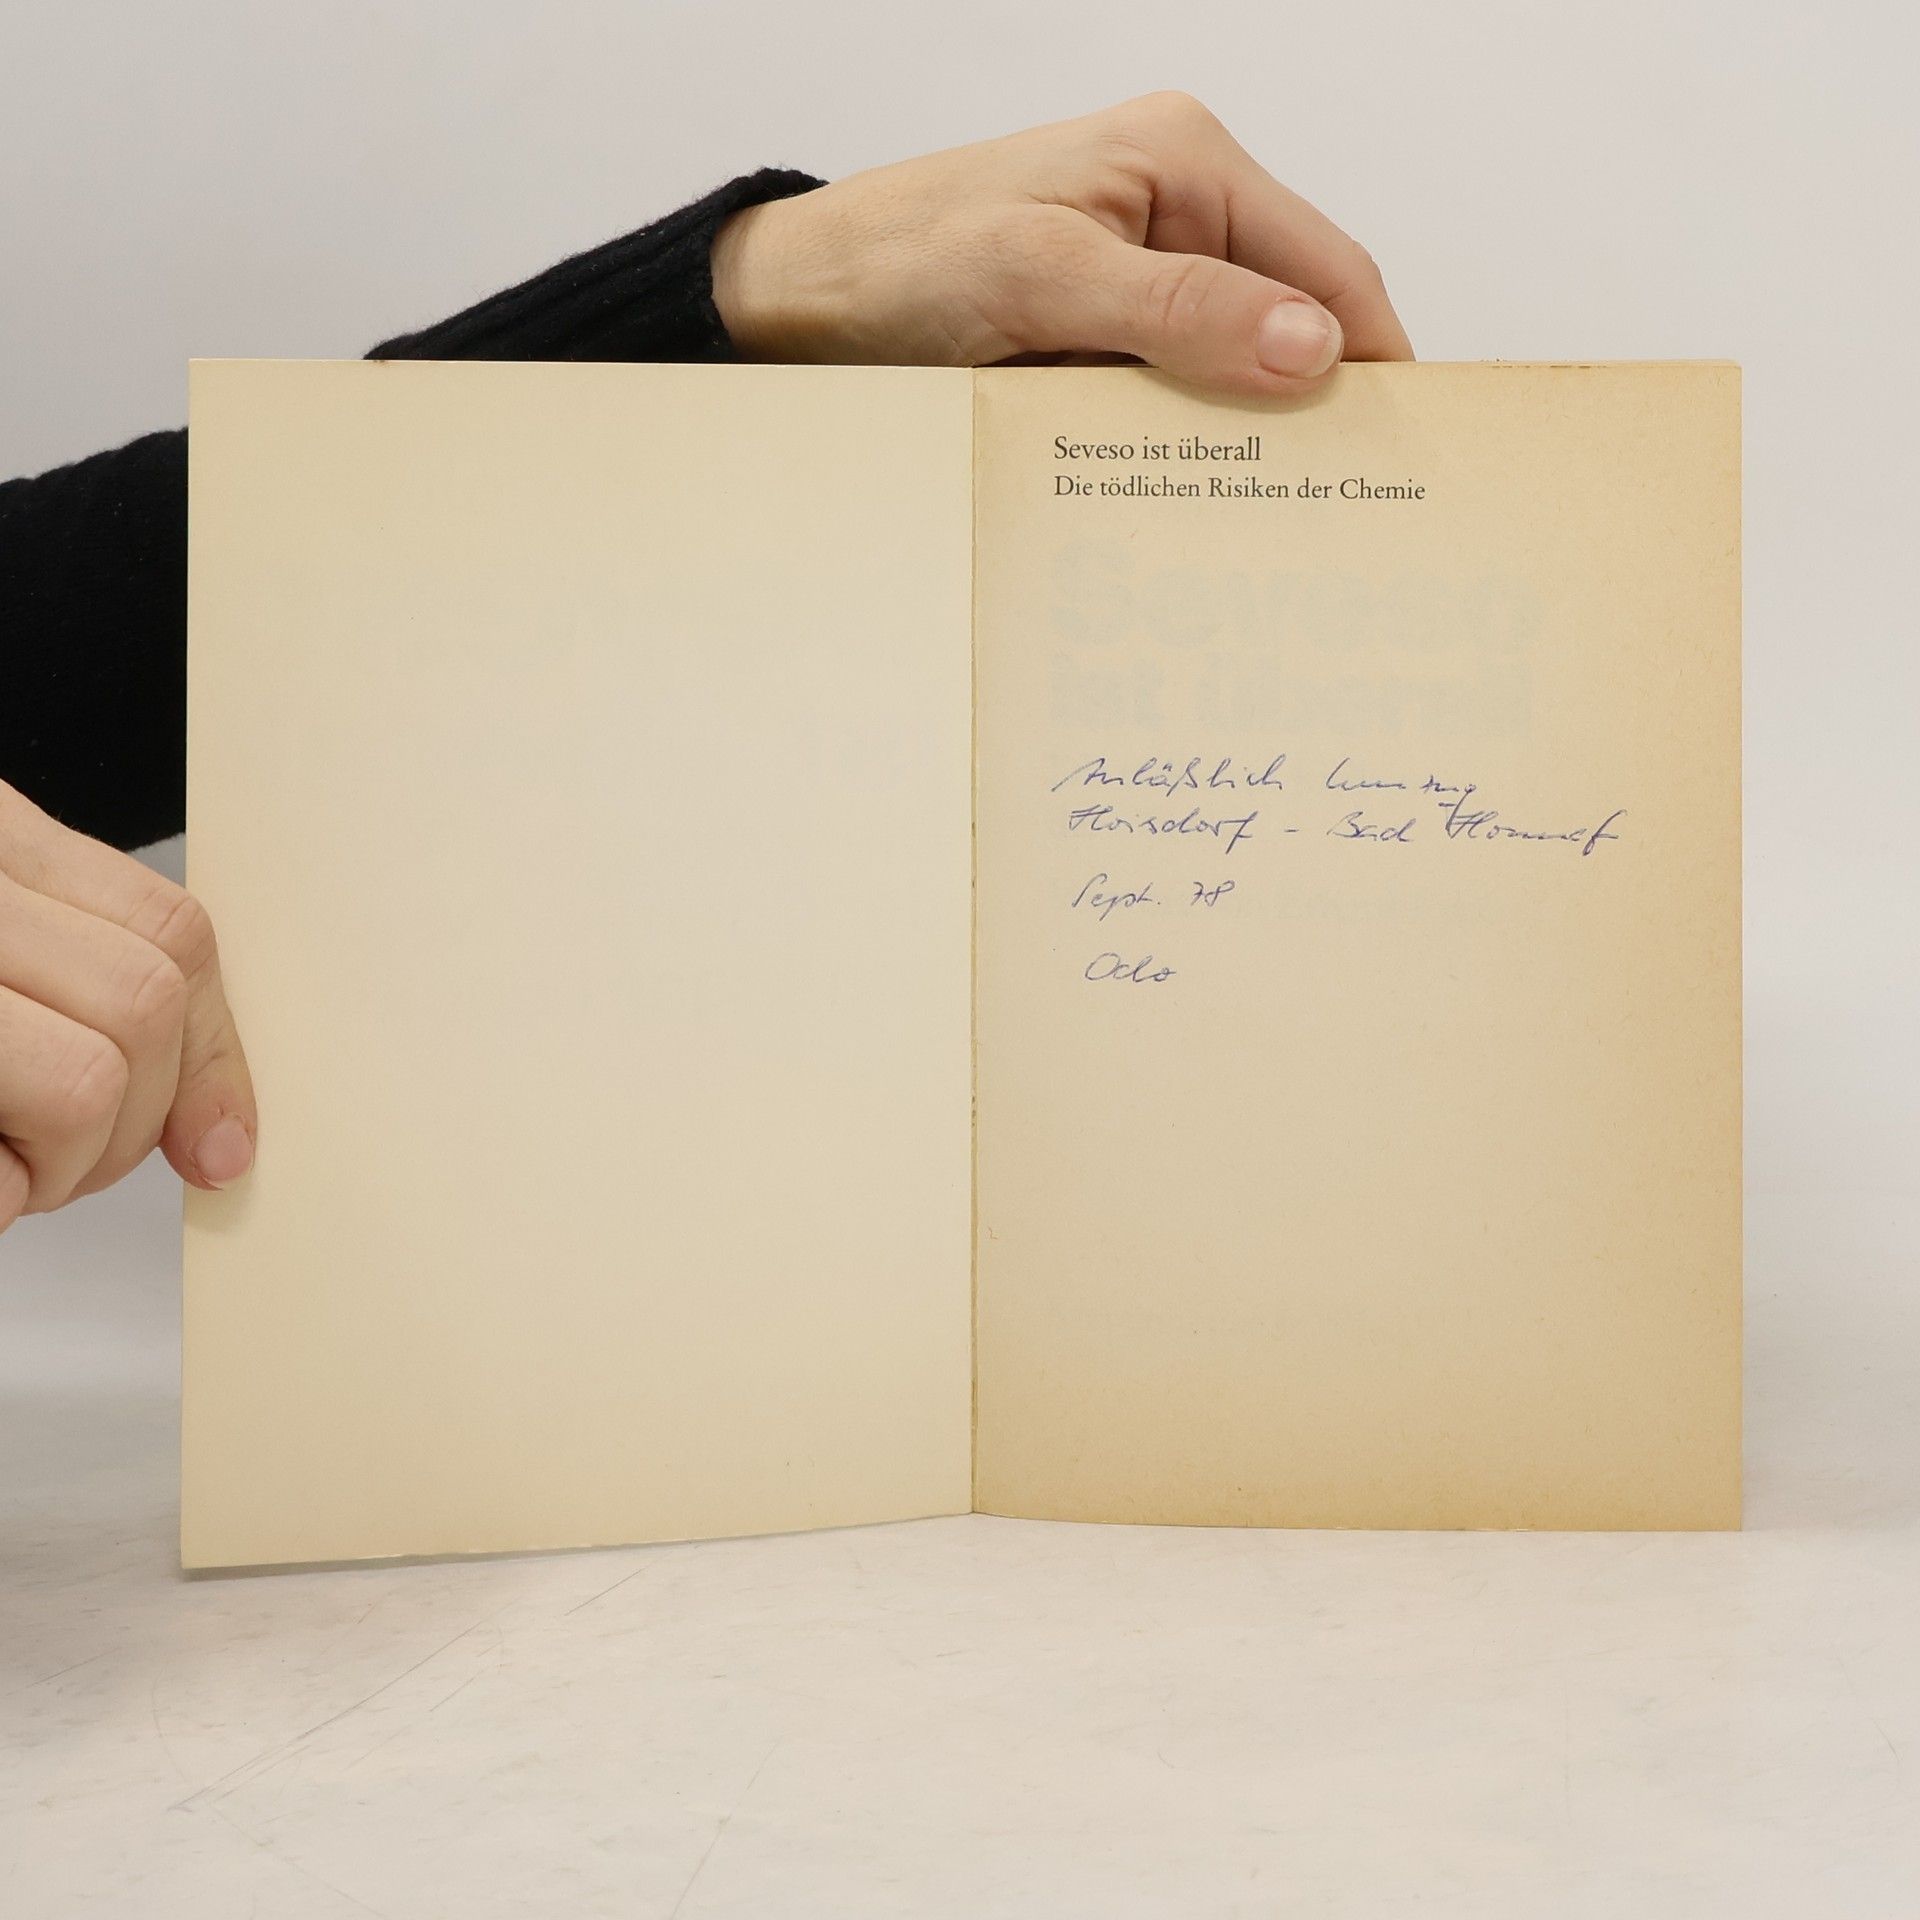 Seveso ist überall
Die tödlichen Risiken der Chemie
Anläßlich Umzug
Hoisdorf - Bad Honnef
Sept. 78
Odo